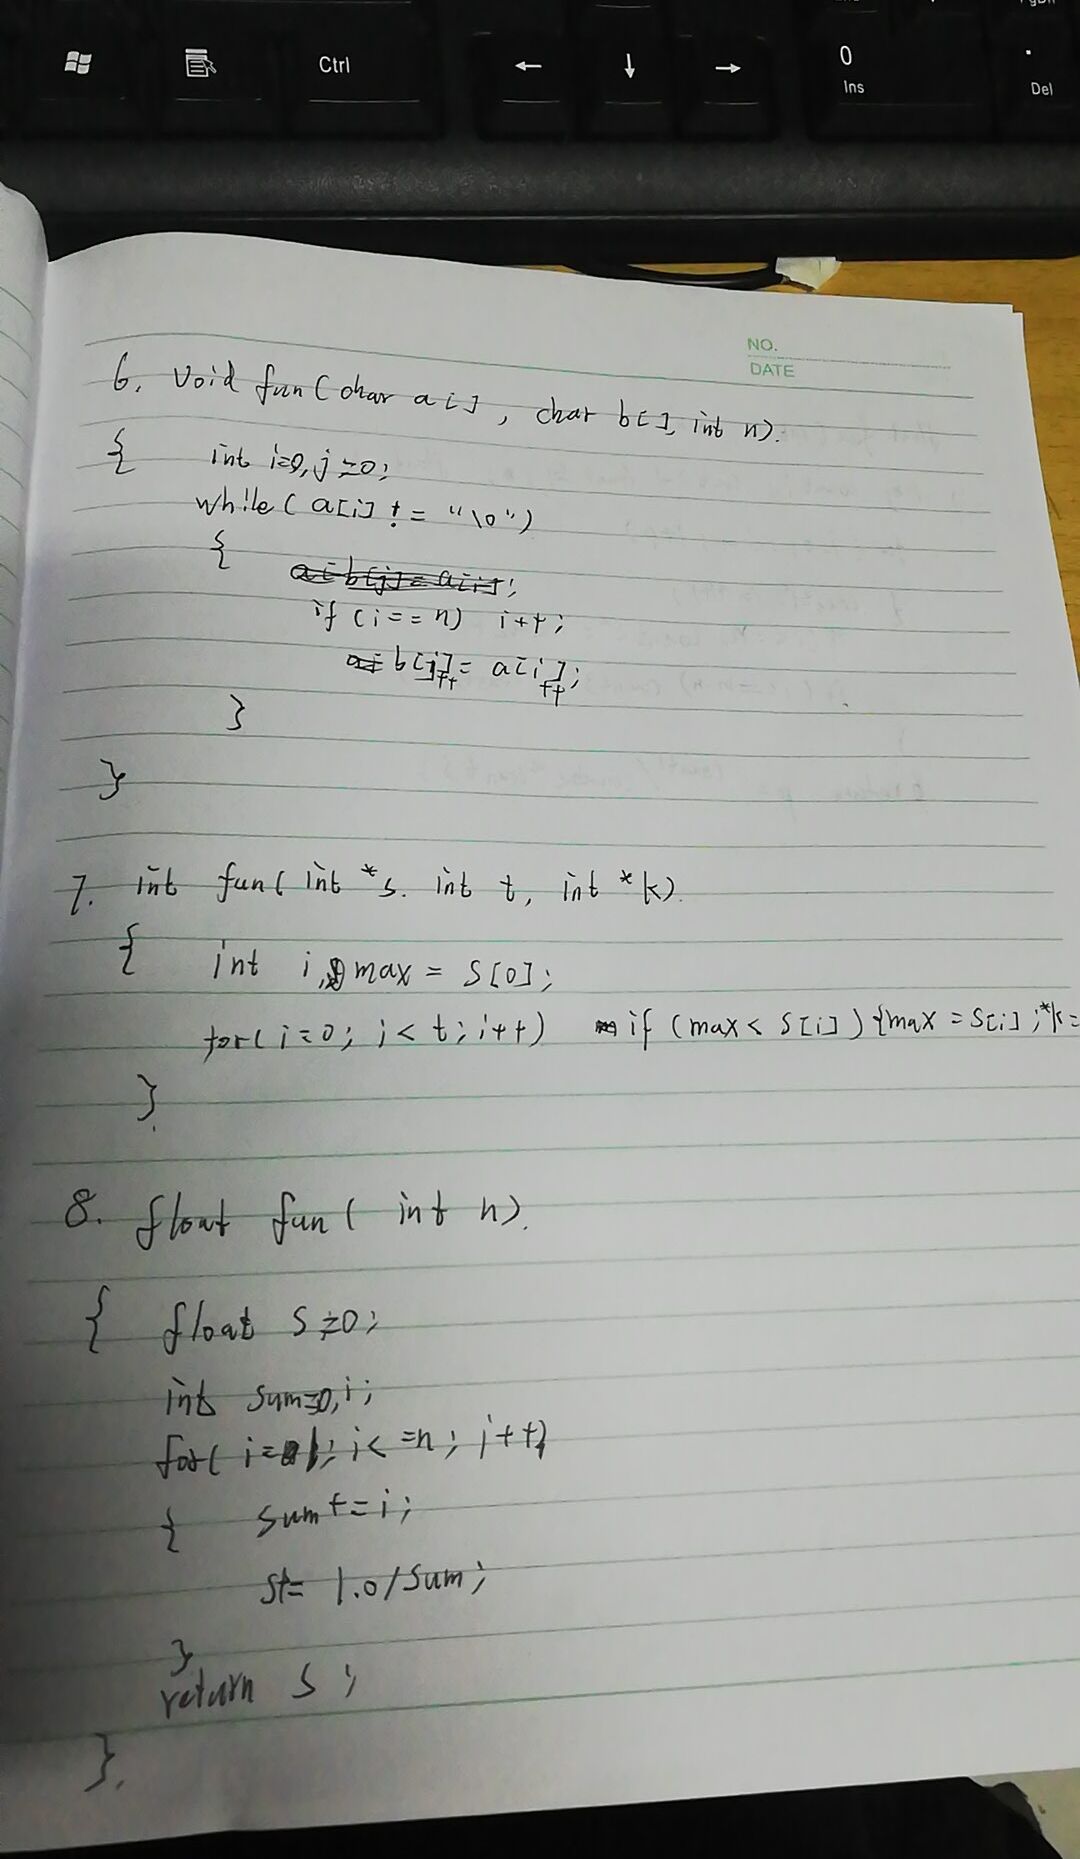 Ctrl
0
Ins
.
Del
NO.
DATE
6. void fun(char a[], char b[], int n).
{ int i=0, j=0;
while( a[i] != "\0")
{
if (i == n) i++;
b[j++]= a[i++];
}
}
7. int fun( int *s. int t, int *k).
{ int i, max = s[0];
for( i=0; i< t; i++) if (max < s[i]) {max = s[i]; *k=
}
8. float fun( int n).
{ float s=0;
int sum=0, i;
for( i=1; i<=n; i++)
{ sum+=i;
s+= 1.0/sum;
}
return s;
}.